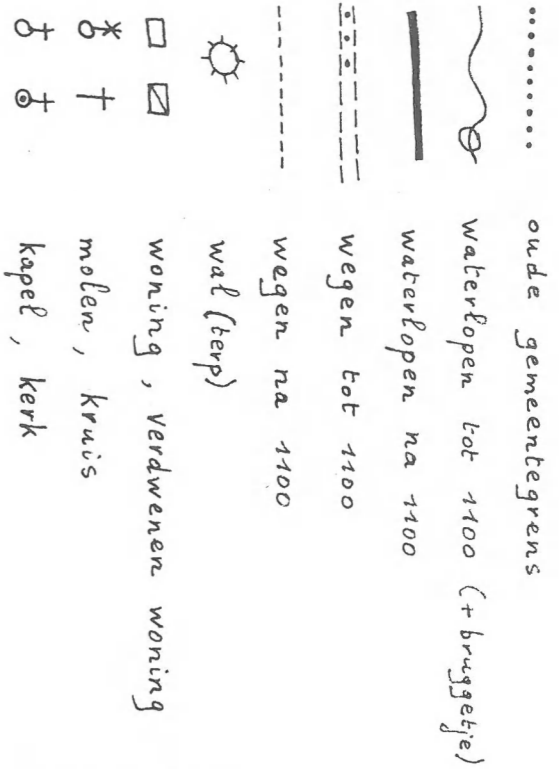 oude gemeentegrens
waterlopen tot 1100 (+ bruggetje)
waterlopen na 1100
wegen tot 1100
wegen na 1100
wal (terp)
woning, verdwenen woning
molen, kruis
kapel, kerk